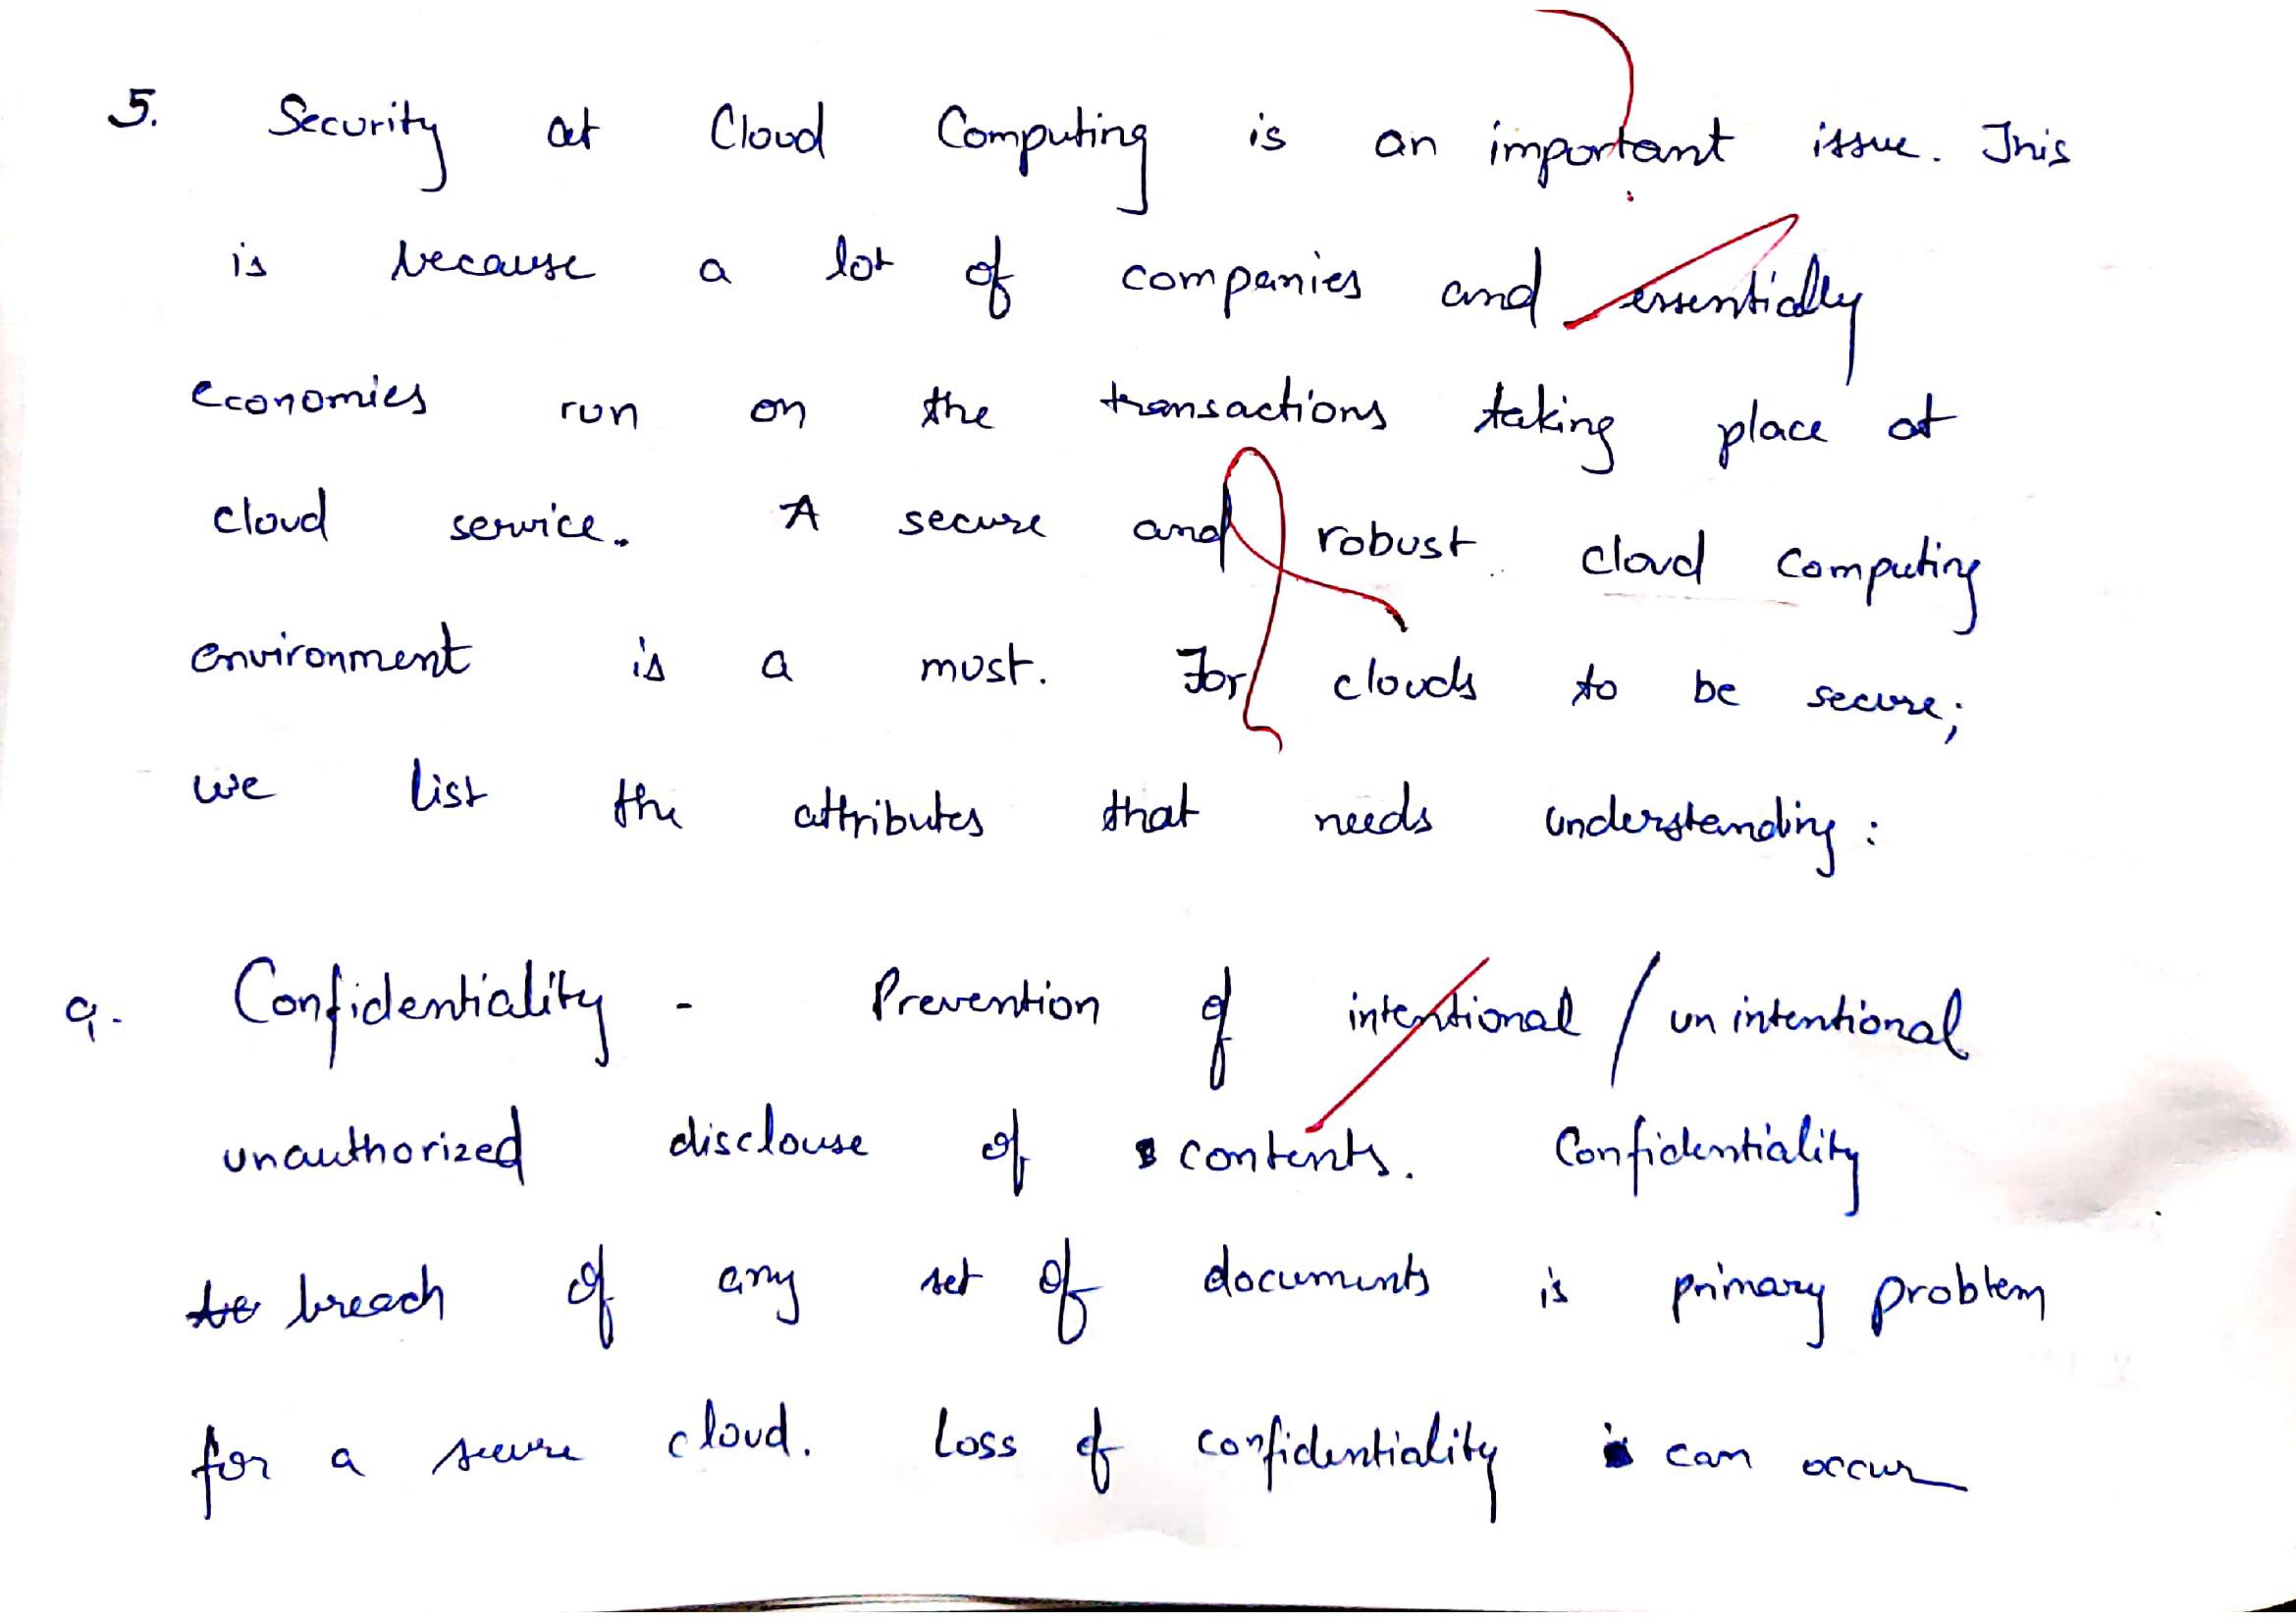 5. Security at Cloud Computing is an important issue. This
is because a lot of companies and essentially
economies run on the transactions taking place at
cloud service. A secure and robust cloud computing
environment is a must. For clouds to be secure;
we list the attributes that needs understanding:
a. Confidentiality - Prevention of intentional / unintentional
unauthorized disclouse of contents. Confidentiality
breach of any set of documents is primary problem
for a secure cloud. Loss of confidentiality can occur